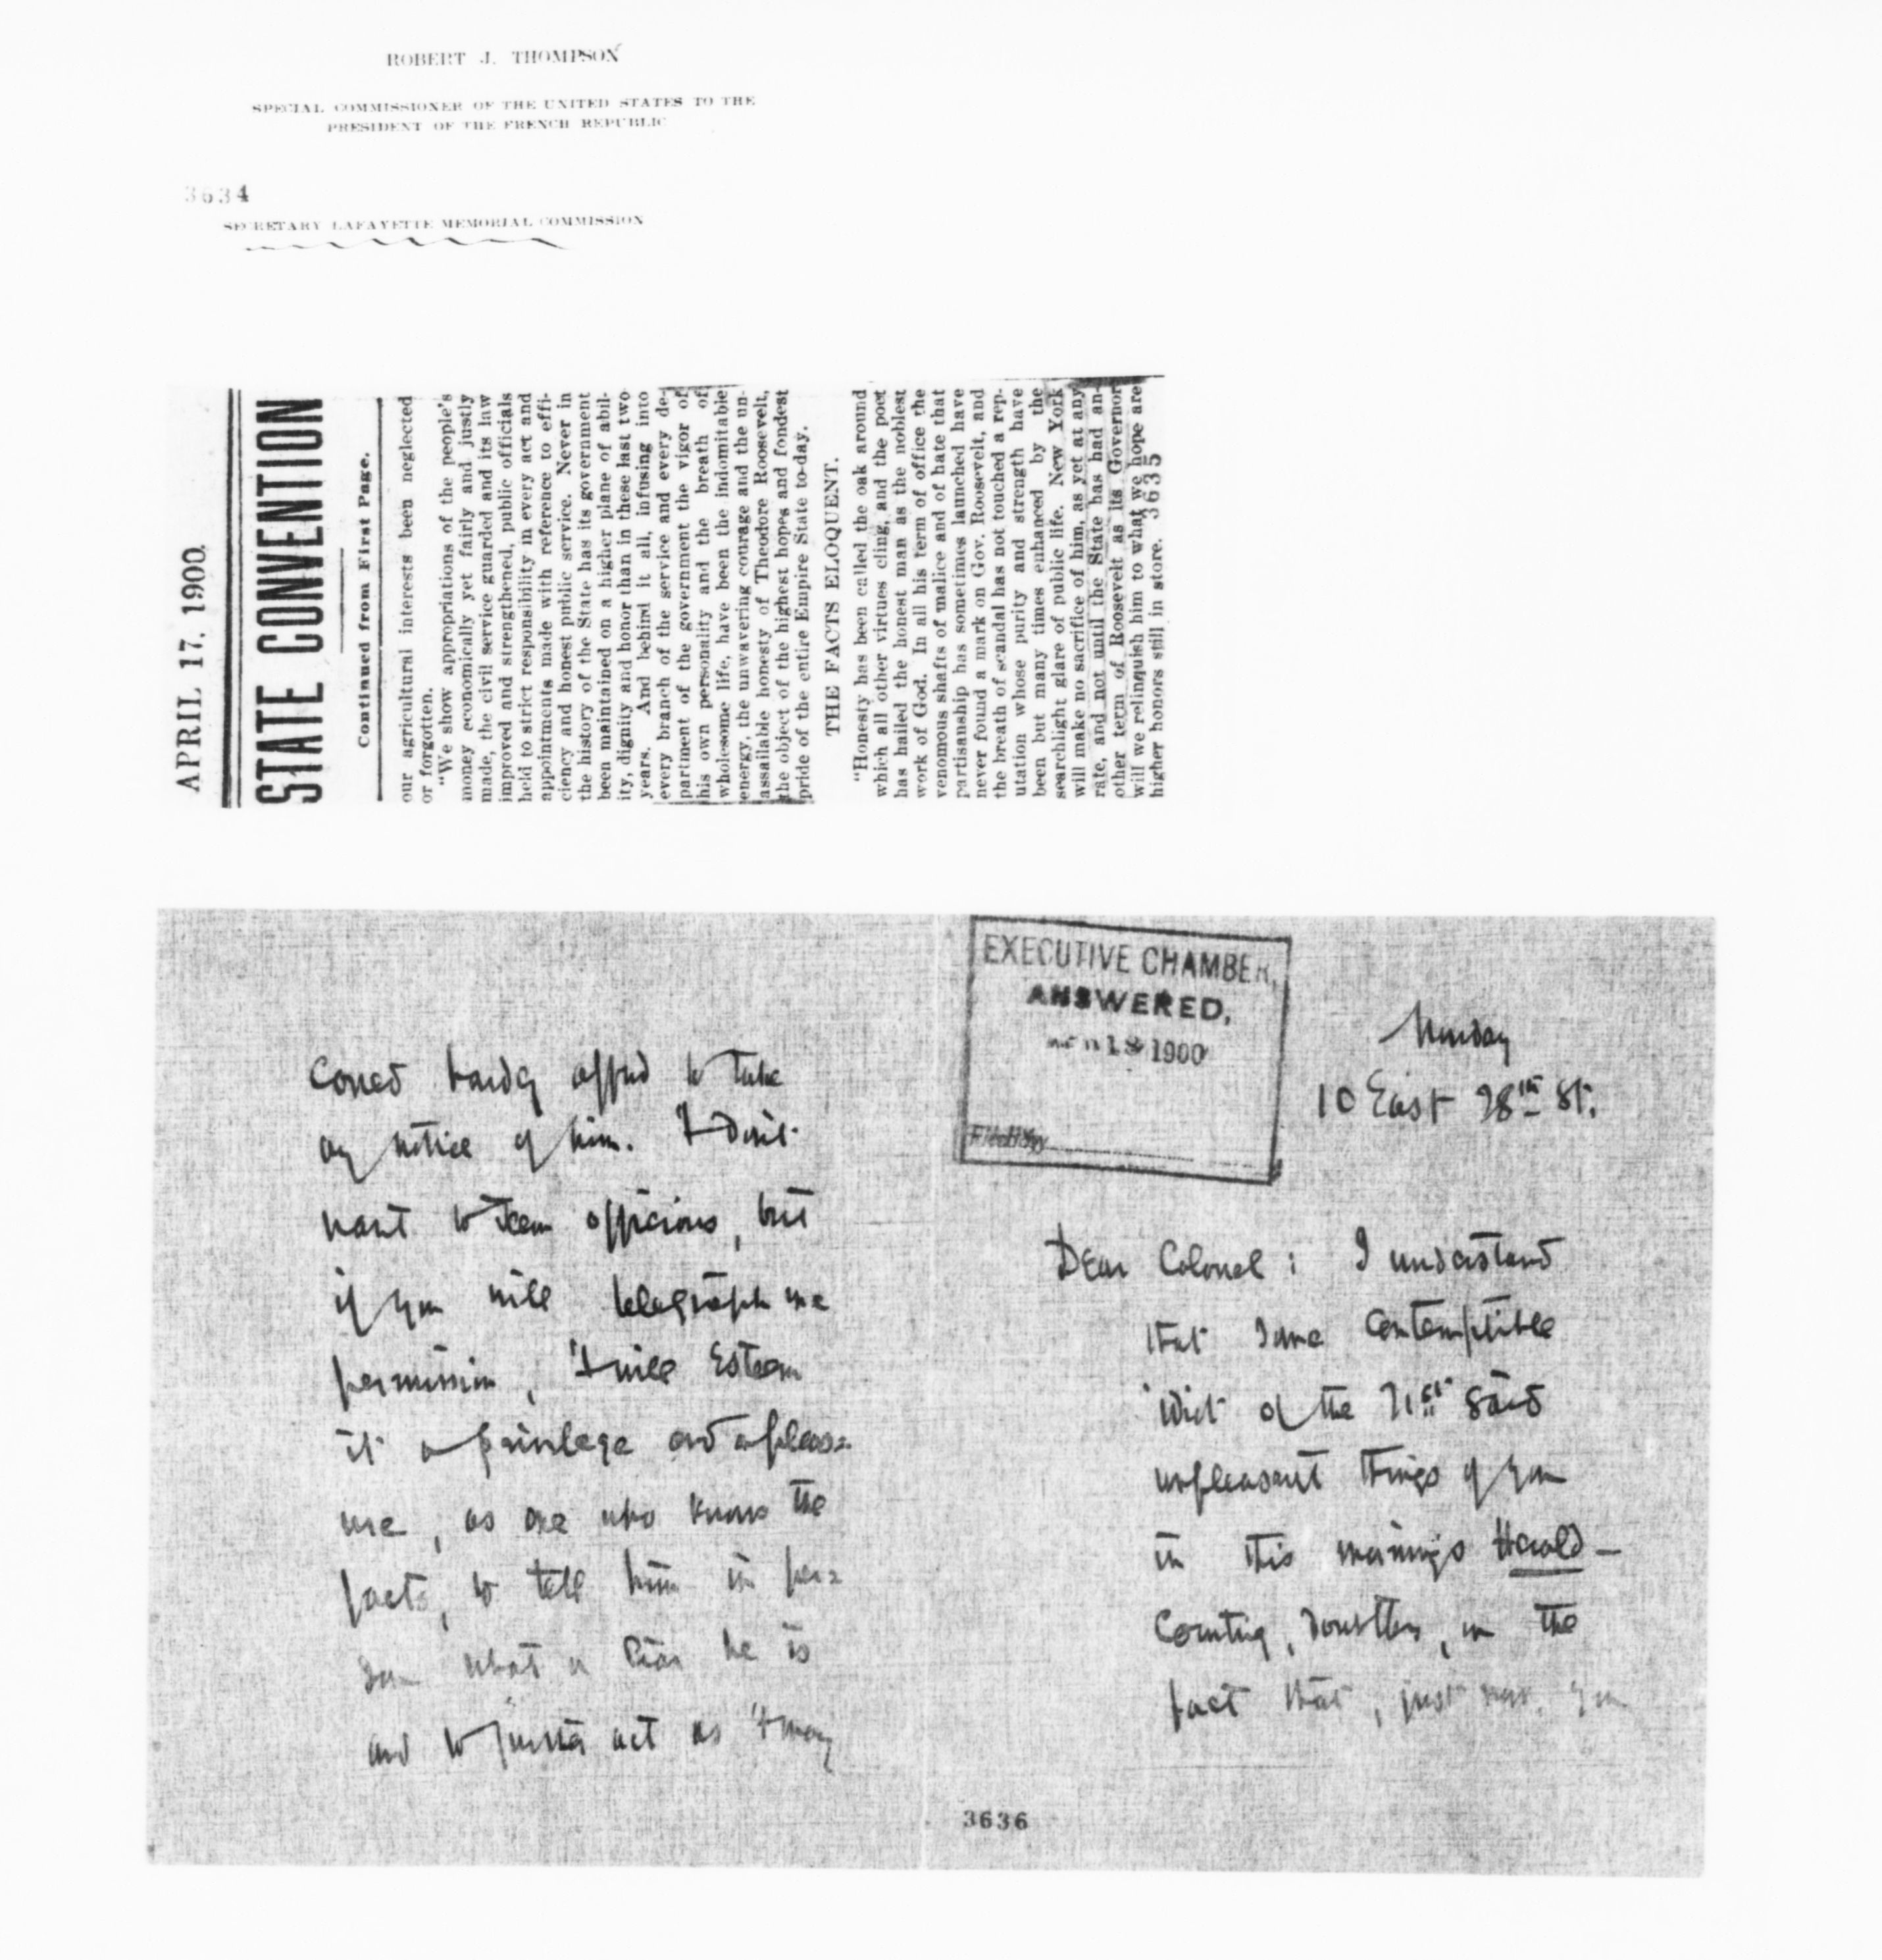 ROBERT J. THOMPSON
SPECIAL COMMISSIONER OF THE UNITED STATES TO THE
PRESIDENT OF THE FRENCH REPUBLIC
3634
SECRETARY LAFAYETTE MEMORIAL COMMISSION
APRIL 17, 1900.
STATE CONVENTION
Continued from First Page.
our agricultural interests been neglected
or forgotten.
"We show appropriations of the people's
money economically yet fairly and justly
made, the civil service guarded and its law
improved and strengthened, public officials
held to strict responsibility in every act and
appointments made with reference to effi-
ciency and honest public service. Never in
the history of the State has its government
been maintained on a higher plane of abil-
ity, dignity and honor than in these last two
years. And behind it all, infusing into
every branch of the service and every de-
partment of the government the vigor of
his own personality and the breath of
wholesome life, have been the indomitable
energy, the unwavering courage and the un-
assailable honesty of Theodore Roosevelt,
the object of the highest hopes and fondest
pride of the entire Empire State to-day.
THE FACTS ELOQUENT.
"Honesty has been called the oak around
which all other virtues cling, and the poet
has hailed the honest man as the noblest
work of God. In all his term of office the
venomous shafts of malice and of hate that
partisanship has sometimes launched have
never found a mark on Gov. Roosevelt, and
the breath of scandal has not touched a rep-
utation whose purity and strength have
been but many times enhanced by the
searchlight glare of public life. New York
will make no sacrifice of him, as yet at any
rate, and not until the State has had an-
other term of Roosevelt as its Governor
will we relinquish him to what we hope are
higher honors still in store. 3635
could hardly afford to take
any notice of him. I don't
want to seem officious, but
if you will telegraph me
permission, I will esteem
it a privilege and a pleas=
ure, as one who knows the
facts, to tell him in per=
son what a liar he is
and to further act as I may
EXECUTIVE CHAMBER,
ANSWERED,
18 1900
Monday
10 East 28th St.
Dear Colonel: I understand
that some contemptible
idiot of the 71st said
unpleasant things of you
in this morning's Herald—
Counting, doubtless, on the
fact that, just now, you
3636